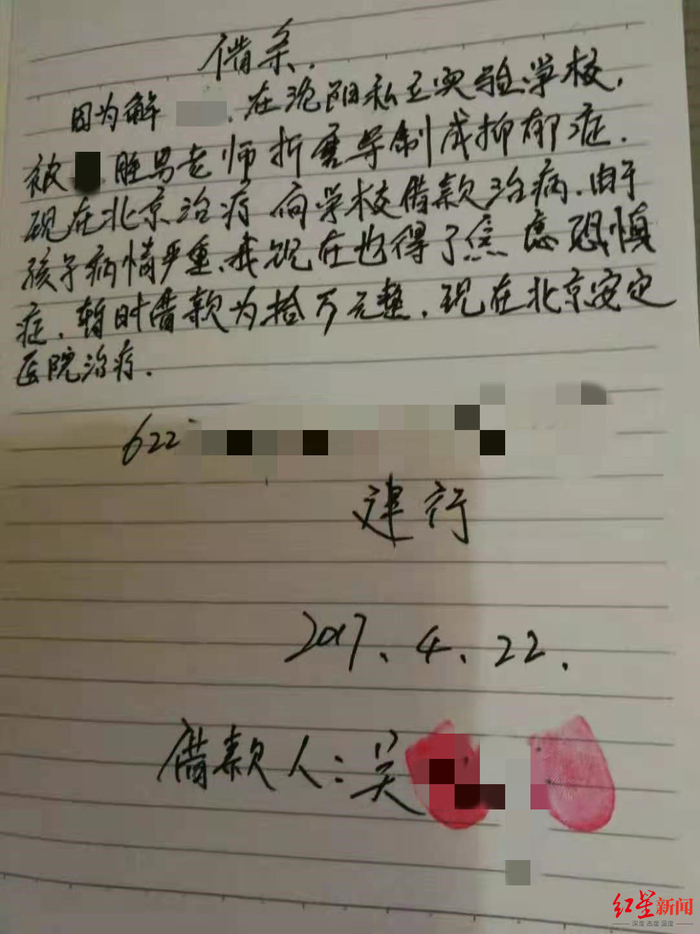 借条.
因为解 .在沈阳私立实验学校,
被 胜男老师折磨导制成抑郁症.
现在北京治疗向学校借款治病.由于
孩子病情严重.我现在也得了焦虑恐惧
症.暂时借款为拾万元整.现在北京安定
医院治疗.
622
建行
2017.4.22.
借款人:吴
红星新闻
深度 态度 温度